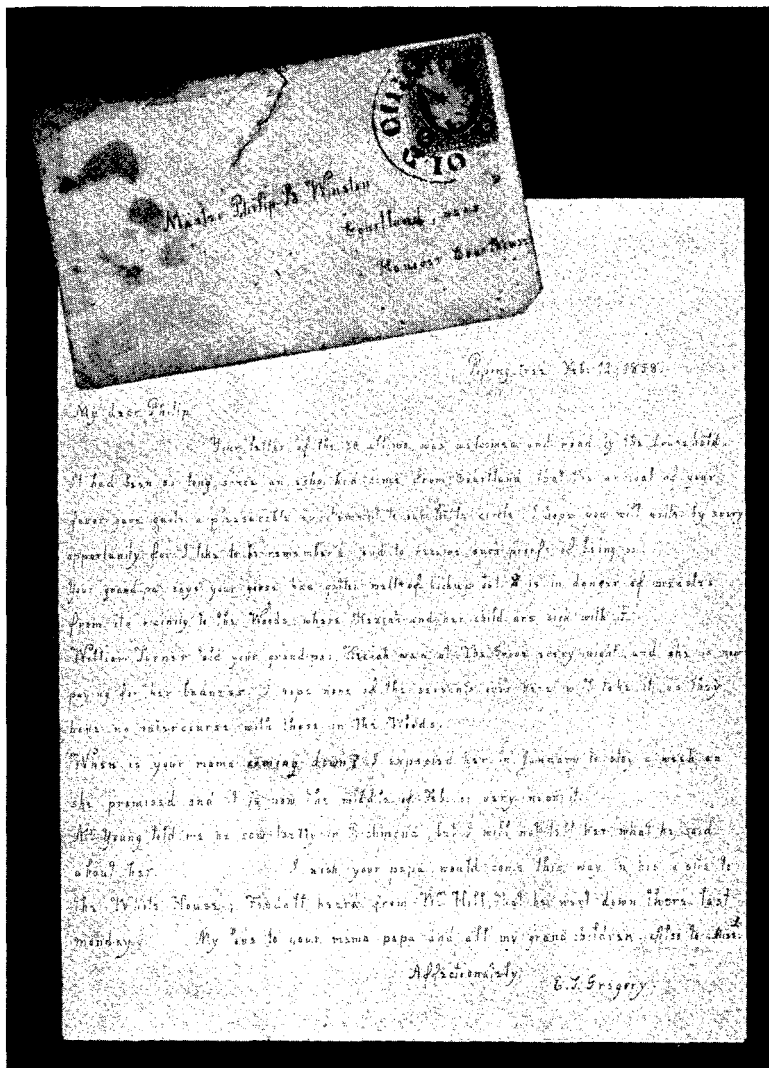 Master Philip B. Winston
Courtland, near
Hanover Court House
Piping tree Feb. 12, 1858.
My dear Philip
Your letter of the 30 ultimo was welcomed and read by the household.
It had been so long since an echo had come from Courtland that the arrival of your
favor gave quite a pleasurable excitement to our little circle. I hope you will write by every
opportunity for I like to be remembered and to receive such proofs of being so.
Your grand-pa says your horse has quite is in danger of measles
from its vicinity to the Woods, where Keziah and her child are sick with it.
William Turner told your grandpa, Keziah was at The Grove every night, and she is now
paying for her badness. I hope none of the servants over here will take it, as they
have no intercourse with those in the Woods.
When is your mama coming down? I expected her in January to stay a week as
she promised and it is now the middle of Feb. or very near it.
Mr Young told me he saw in Richmond, but I will not tell her what he said
about her. I wish your papa would come this way in his to
the White House; heard from Wm Hill, that he went down there last
monday. My love to your mama papa and all my grand children, also to
Affectionately
E. T. Gregory.